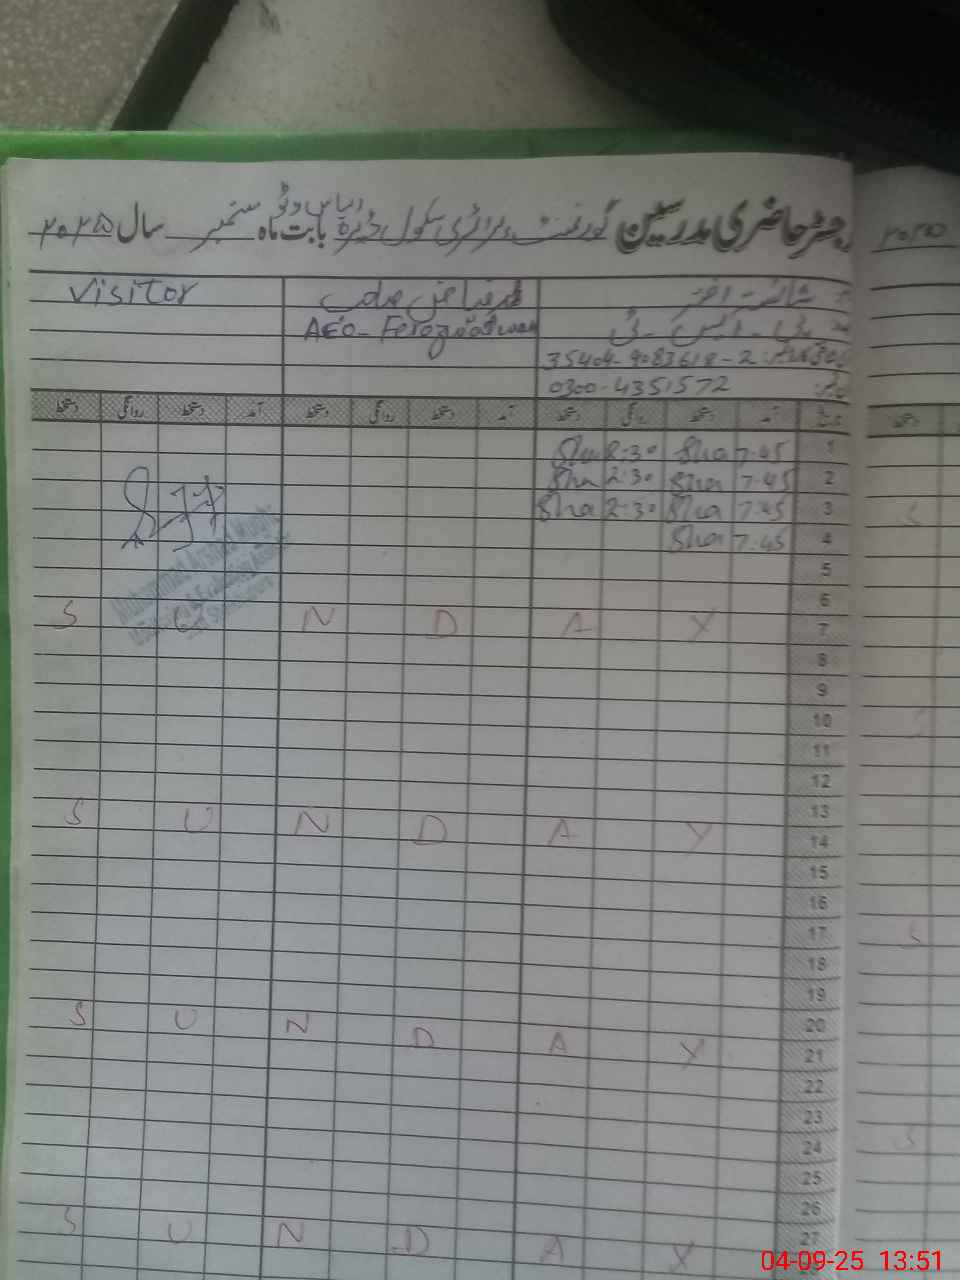 رجسٹر حاضری مدرسین گورنمنٹ پرائمری سکول ڈیرہ بابت ماہ ستمبر سال ۲۰۲۵
شائستہ اختر
Visitor
پی - ایس - ٹی
AEO - Ferozwatwan
35404-9083618-2
0300-4351572
تاریخ آمد دستخط روانگی دستخط آمد دستخط روانگی دستخط آمد دستخط روانگی دستخط
1 7.45 Sha 2:30 Sha
2 7.45 Sha 2:30 Sha
3 7.45 Sha 2:30 Sha
4 7.45 Sha
5
6
7 S U N D A Y
8
9
10
11
12
13
14 S U N D A Y
15
16
17
18
19
20
21 S U N D A Y
22
23
24
25
26
27
S U N D A Y
۲۰۲۵
دستخط
S
S
S
04-09-25 13:51